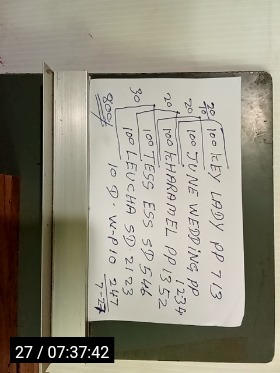 20/10 100 KEY LADY PP 713
20 100 JUNE WEDDING PP 1234
20 100 KHARAMEL PP 1352
30 100 TESS ESS SD 546
100 LEUCHA SD 2123
800/ 10 D. W-P10 247
7-27
27 / 07:37:42